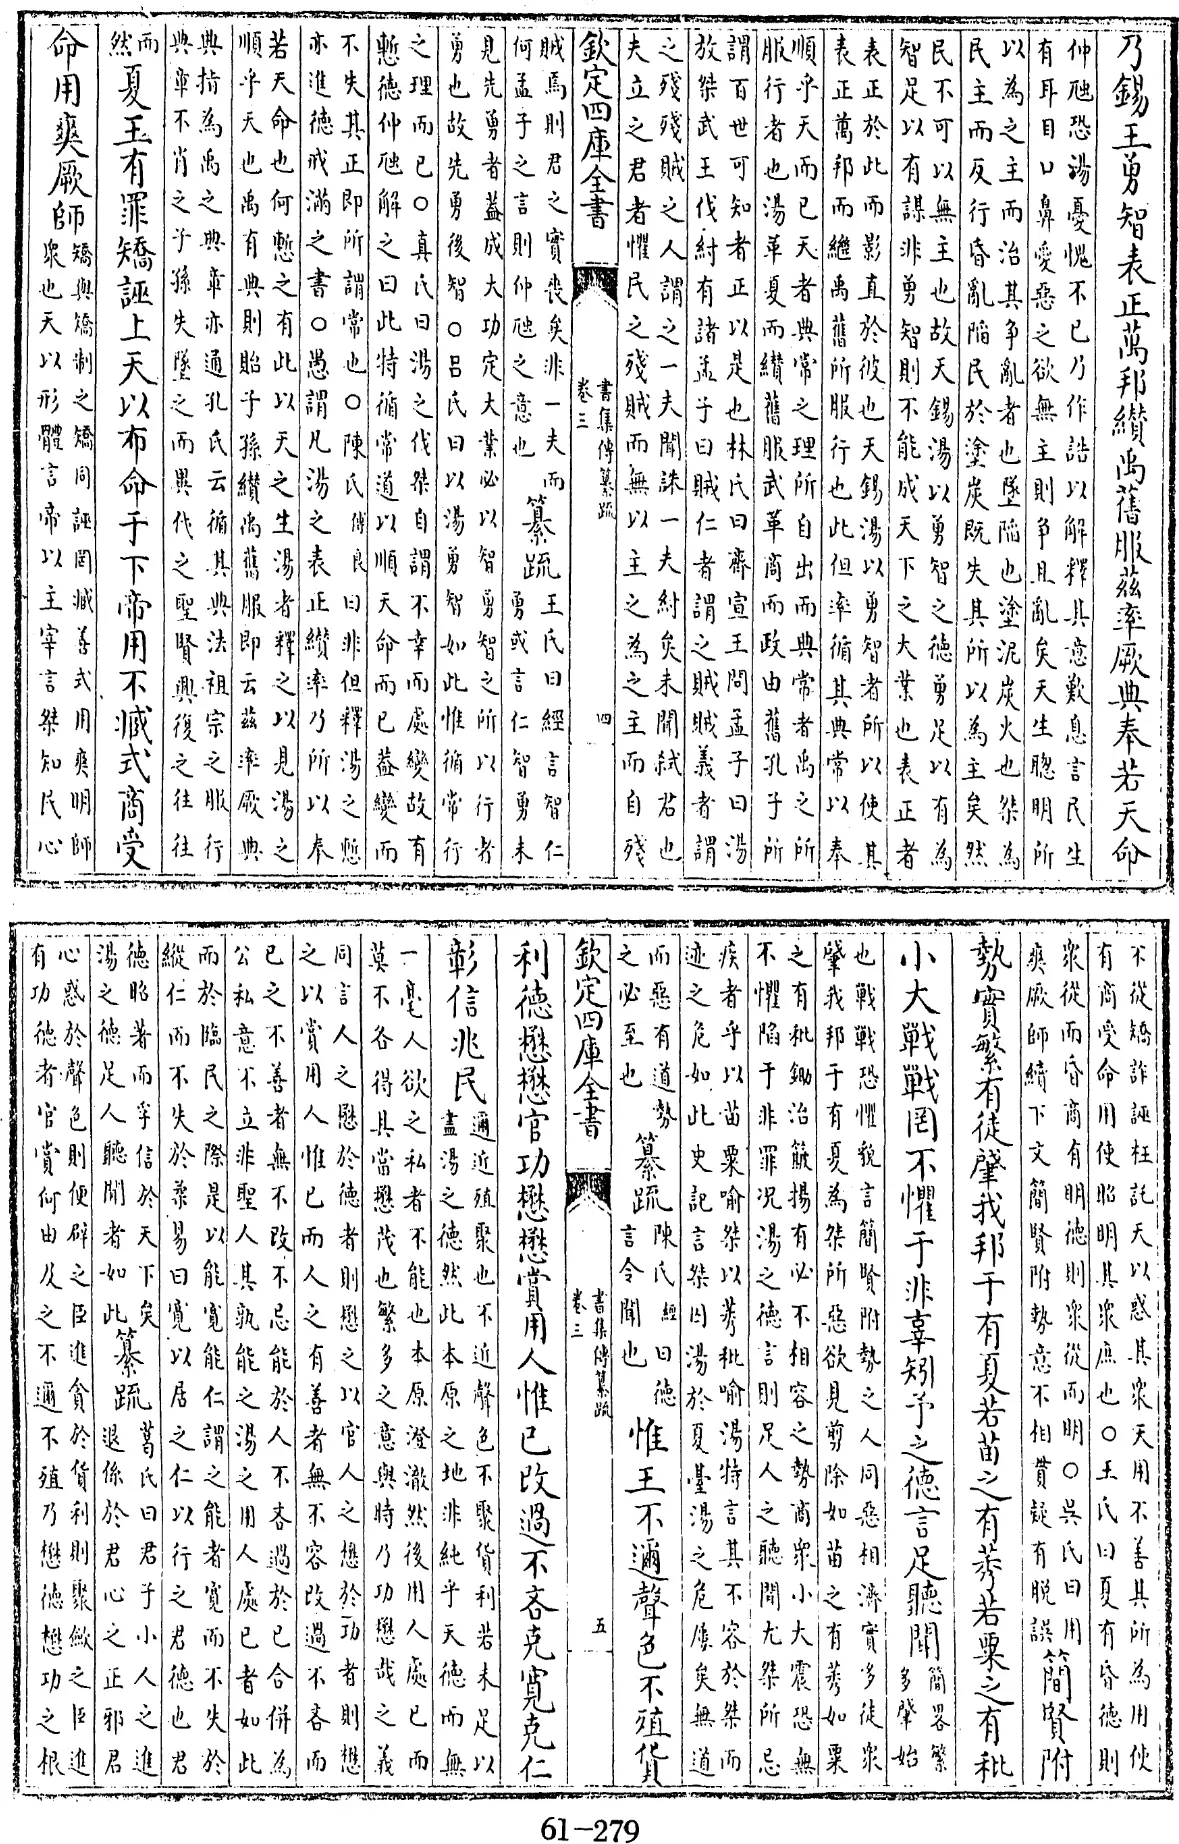 乃錫王勇智表正萬邦纘禹舊服茲率厥典奉若天命
仲虺恐湯憂愧不已乃作誥以解釋其意歎息言民生
有耳目口鼻愛惡之欲無主則争且亂矣天生聰明所
以為之主而治其争亂者也墜陷也塗泥炭火也桀為
民主而反行昏亂陷民於塗炭既失其所以為主矣然
民不可以無主也故天錫湯以勇智之德勇足以有為
智足以有謀非勇智則不能成天下之大業也表正者
表正於此而影直於彼也天錫湯以勇智者所以使其
表正萬邦而繼禹舊所服行也此但率循其典常以奉
順乎天而已天者典常之理所自出而典常者禹之所
服行者也湯革夏而纘舊服武革商而政由舊孔子所
謂百世可知者正以是也林氏曰齊宣王問孟子曰湯
放桀武王伐紂有諸孟子曰賊仁者謂之賊賊義者謂
之殘殘賊之人謂之一夫聞誅一夫紂矣未聞弑君也
夫立之君者懼民之殘賊而無以主之為之主而自殘
欽定四庫全書
書集傳纂疏
卷三
四
賊焉則君之實喪矣非一夫而
何孟子之言則仲虺之意也
纂疏
王氏曰經言智仁
勇或言仁智勇未
見先勇者蓋成大功定大業必以智勇智之所以行者
勇也故先勇後智○吕氏曰以湯勇智如此惟循常行
之理而已○真氏曰湯之伐桀自謂不幸而處變故有
慙德仲虺解之曰此特循常道以順天命而已蓋變而
不失其正即所謂常也○陳氏傅良曰非但釋湯之慙
亦進德戒滿之書○愚謂凡湯之表正纘率乃所以奉
若天命也何慙之有此以天之生湯者釋之以見湯之
順乎天也禹有典則貽子孫纘禹舊服即云茲率厥典
典指為禹之典章亦通孔氏云循其典法祖宗之服行
典章不肖之子孫失墜之而異代之聖賢興復之往往
而
然
夏王有罪矯誣上天以布命于下帝用不臧式商受
命用爽厥師
矯與矯制之矯同誣罔臧善式用爽明師
衆也天以形體言帝以主宰言桀知民心
不從矯詐誣枉託天以惑其衆天用不善其所為用使
有商受命用使昭明其衆庶也○王氏曰夏有昏德則
衆從而昏商有明德則衆從而明○吳氏曰用
爽厥師續下文簡賢附勢意不相貫疑有脱誤
簡賢附
勢實繁有徒肇我邦于有夏若苗之有莠若粟之有秕
小大戰戰罔不懼于非辜矧予之德言足聽聞
簡畧繁
多肇始
也戰戰恐懼貌言簡賢附勢之人同惡相濟實多徒衆
肇我邦于有夏為桀所惡欲見剪除如苗之有莠如粟
之有秕鋤治簸揚有必不相容之勢商衆小大震恐無
不懼陷于非罪况湯之德言則足人之聽聞尤桀所忌
疾者乎以苗粟喻桀以莠秕喻湯特言其不容於桀而
迹之危如此史記言桀囚湯於夏臺湯之危屢矣無道
而惡有道勢
之必至也
纂疏
陳氏經曰德
言令聞也
惟王不邇聲色不殖貨
欽定四庫全書
書集傳纂疏
卷三
五
利德懋懋官功懋懋賞用人惟己改過不吝克寛克仁
彰信兆民
邇近殖聚也不近聲色不聚貨利若未足以
盡湯之德然此本原之地非純乎天德而無
一毫人欲之私者不能也本原澄澈然後用人處己而
莫不各得其當懋茂也繁多之意與時乃功懋哉之義
同言人之懋於德者則懋之以官人之懋於功者則懋
之以賞用人惟己而人之有善者無不容改過不吝而
己之不善者無不改不忌能於人不吝過於己合併為
公私意不立非聖人其孰能之湯之用人處己者如此
而於臨民之際是以能寛能仁謂之能者寛而不失於
縱仁而不失於柔易曰寛以居之仁以行之君德也君
德昭著而孚信於天下矣
湯之德足人聽聞者如此
纂疏
葛氏曰君子小人之進
退係於君心之正邪君
心惑於聲色則便辟之臣進貪於貨利則聚斂之臣進
有功德者官賞何由及之不邇不殖乃懋德懋功之根
61-279